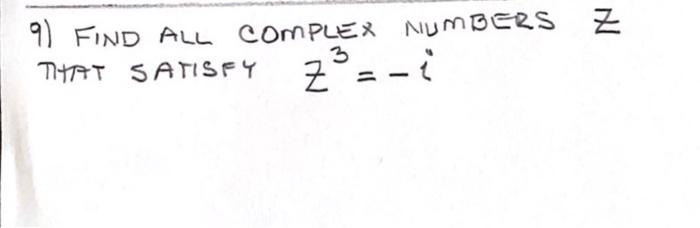 9) FIND ALL COMPLEX NUMBERS Z
THAT SATISFY Z³ = -i